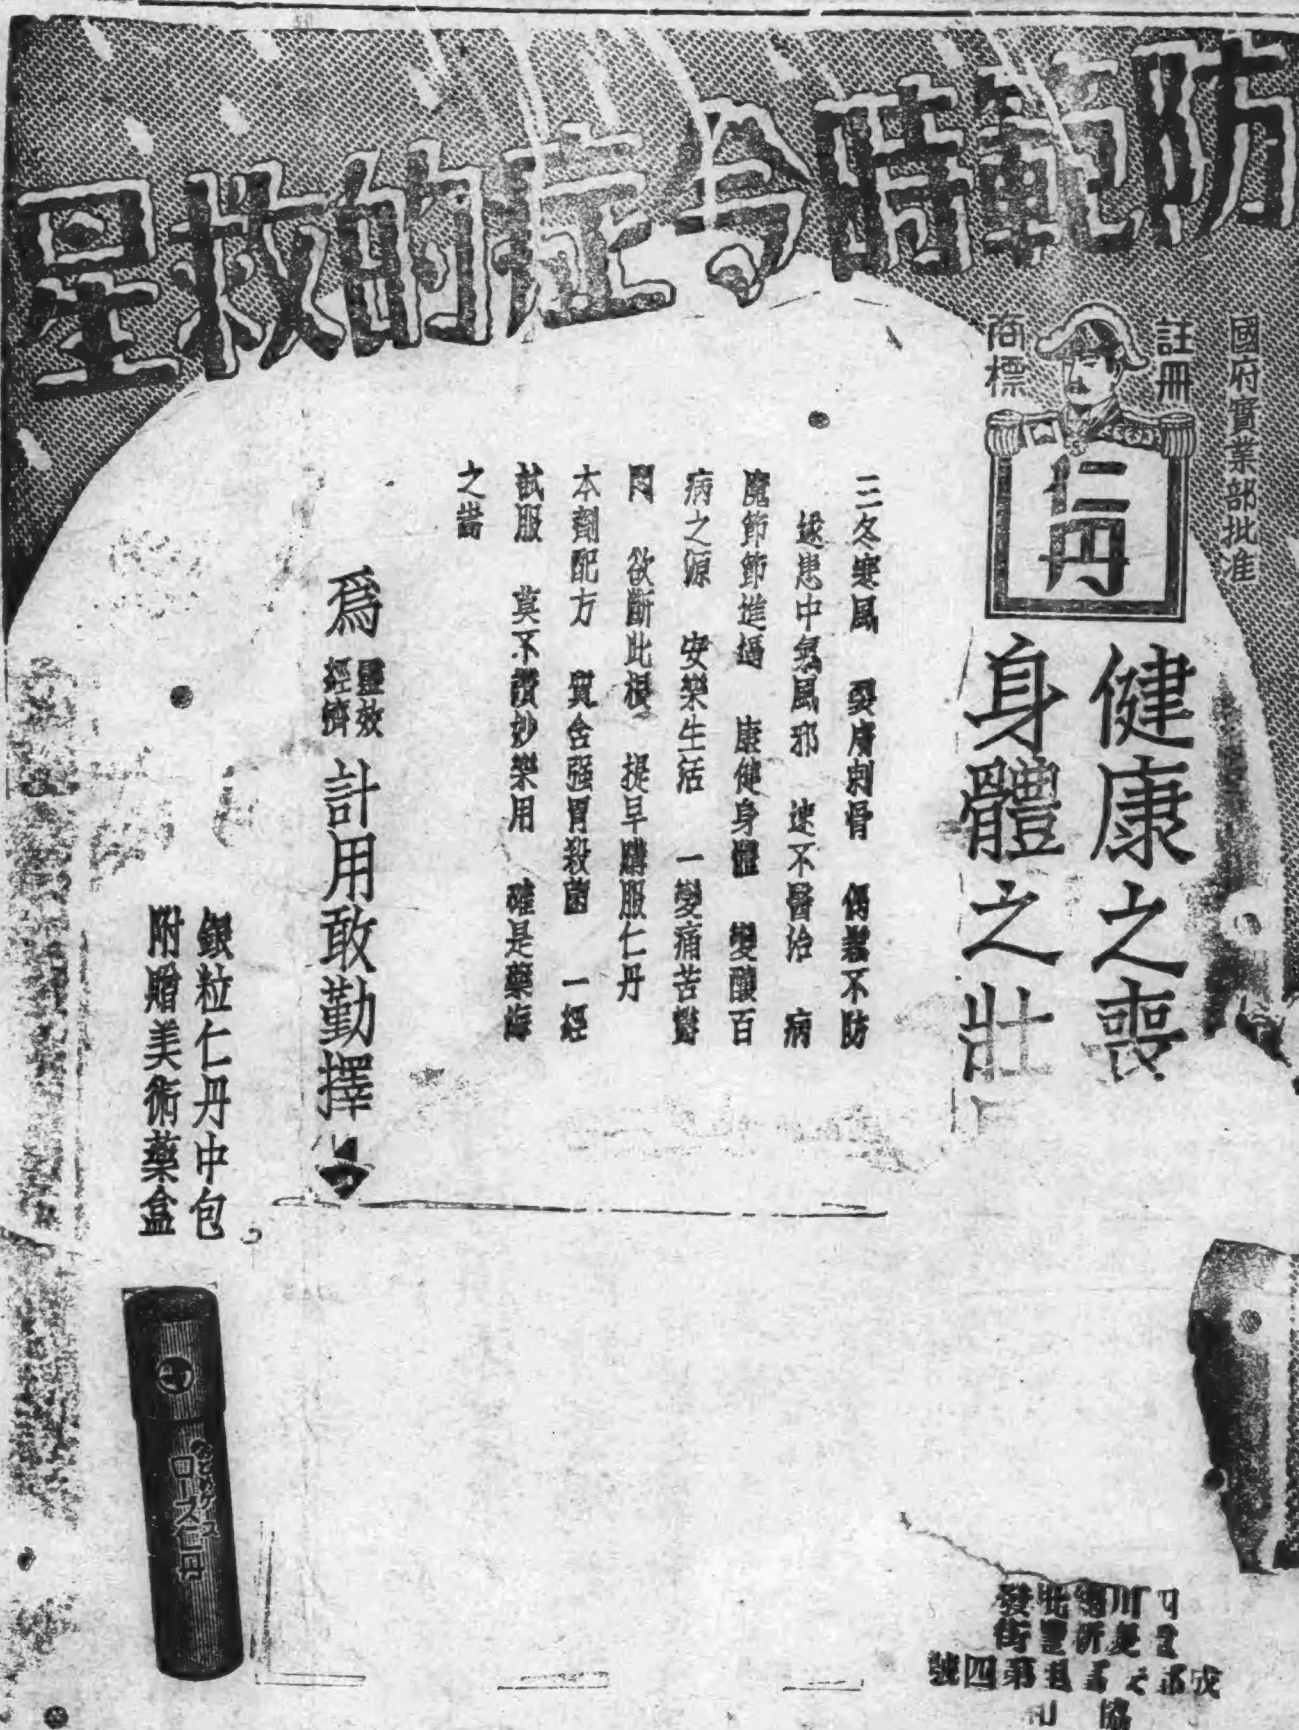 防範時令症的救星
國府實業部批准
註冊
商標
仁丹
健康之喪
身體之壯
三冬寒風 裂膚刺骨 偶爾不防
遂患中氣風邪 速不醫治 病
魔節節進逼 康健身體 變釀百
病之源 安樂生活 一變痛苦鬱
悶 欲斷此根 提早購服仁丹
本劑配方 質含强胃殺菌 一經
試服 莫不讚妙樂用 確是藥海
之
爲靈效經濟計用敢勤擇
銀粒仁丹中包
附贈美術藥盒
仁丹
四川總批發
第四號
協